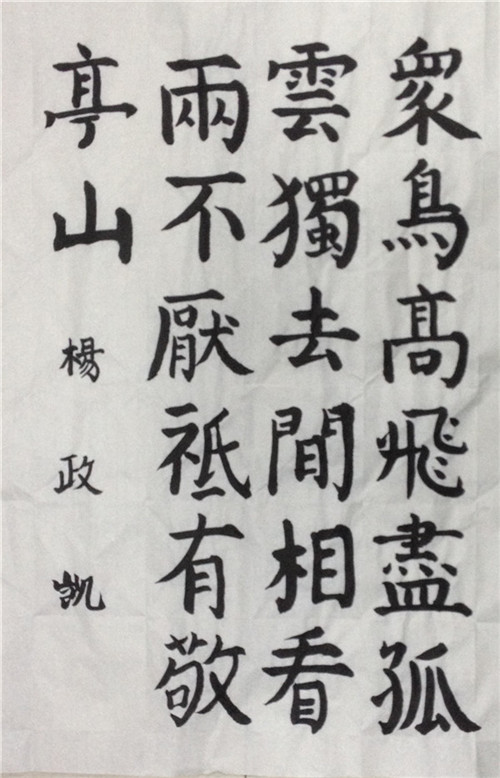 衆鳥高飛盡孤
雲獨去間相看
兩不厭祗有敬
亭山 楊政凱